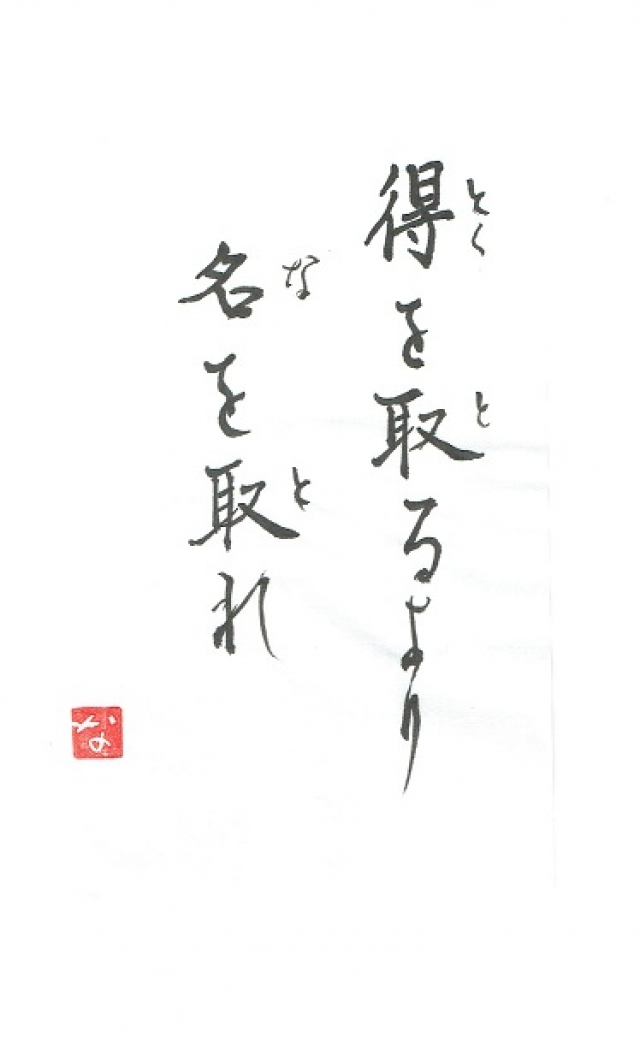 得を取るより
とく と
名を取れ
な と
な